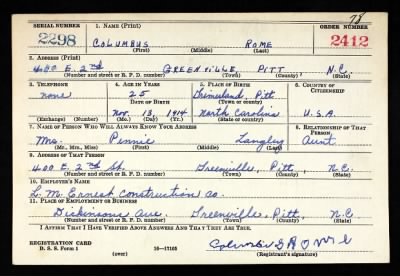 78
SERIAL NUMBER 1. NAME (Print) ORDER NUMBER
2298 COLUMBUS ROME 2412
(First) (Middle) (Last)
2. ADDRESS (Print)
400 E. 2nd GREENVILLE, PITT N.C.
(Number and street or R. F. D. number) (Town) (County) (State)
3. TELEPHONE 4. AGE IN YEARS 5. PLACE OF BIRTH 6. COUNTRY OF CITIZENSHIP
none 25 Grimesland, Pitt
DATE OF BIRTH (Town or county)
Nov. 13, 1914 North Carolina U.S.A.
(Exchange) (Number) (Mo.) (Day) (Yr.) (State or country)
7. NAME OF PERSON WHO WILL ALWAYS KNOW YOUR ADDRESS 8. RELATIONSHIP OF THAT PERSON
Mrs. Pennie Langley Aunt
(Mr., Mrs., Miss) (First) (Middle) (Last)
9. ADDRESS OF THAT PERSON
400 E. 2nd St. Greenville, Pitt N.C.
(Number and street or R. F. D. number) (Town) (County) (State)
10. EMPLOYER'S NAME
L. M. Ernest Construction Co.
11. PLACE OF EMPLOYMENT OR BUSINESS
Dickinson Ave. Greenville, Pitt, N.C.
(Number and street or R. F. D. number) (Town) (County) (State)
I AFFIRM THAT I HAVE VERIFIED ABOVE ANSWERS AND THAT THEY ARE TRUE.
REGISTRATION CARD
D. S. S. Form 1 16—17105
(over) (Registrant's signature)